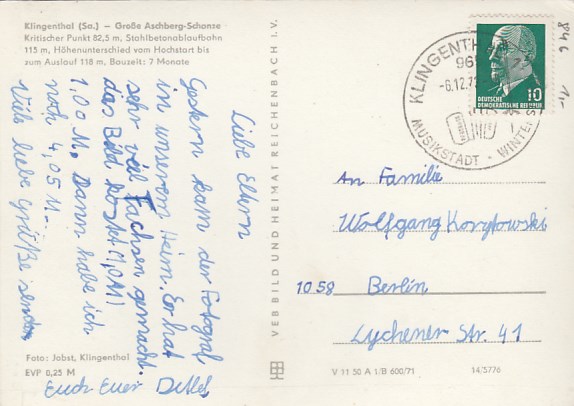 Klingenthal (Sa.) – Große Aschberg-Schanze
Kritischer Punkt 82,5 m, Stahlbetonablaufbahn
115 m, Höhenunterschied vom Hochstart bis
zum Auslauf 118 m. Bauzeit: 7 Monate
Liebe Eltern
Gestern kam der Fotograf
in unserem Heim. Er hat
sehr viel Fachsen gemacht.
das Bild kostet (1,0M)
1,00 M. Dann habe ich
noch 4,05 M.
Viele liebe Grüße senden
Euch Euer Detlef
Foto: Jobst, Klingenthal
EVP 0,25 M
VEB BILD UND HEIMAT REICHENBACH I. V.
KLINGENTHAL
-6.12.72
MUSIKSTADT - WINTERS
10
DEUTSCHE
DEMOKRATISCHE REPUBLIK
846
1,-
An Familie
Wolfgang Korytowski
1058 Berlin
Lychener Str. 41
V 11 50 A 1/B 600/71
14/3776